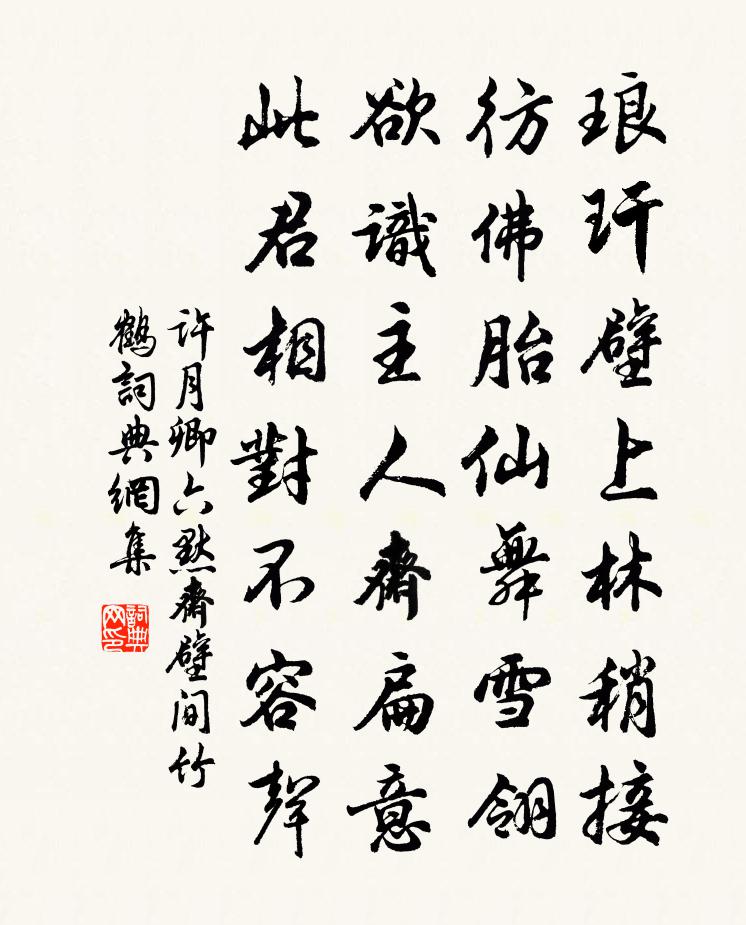 琅玕壁上林稍接
彷佛胎仙舞雪翎
欲識主人齋扁意
此君相對不容聲
許月卿六默齋壁間竹
鶴詞典網集
詞典网印